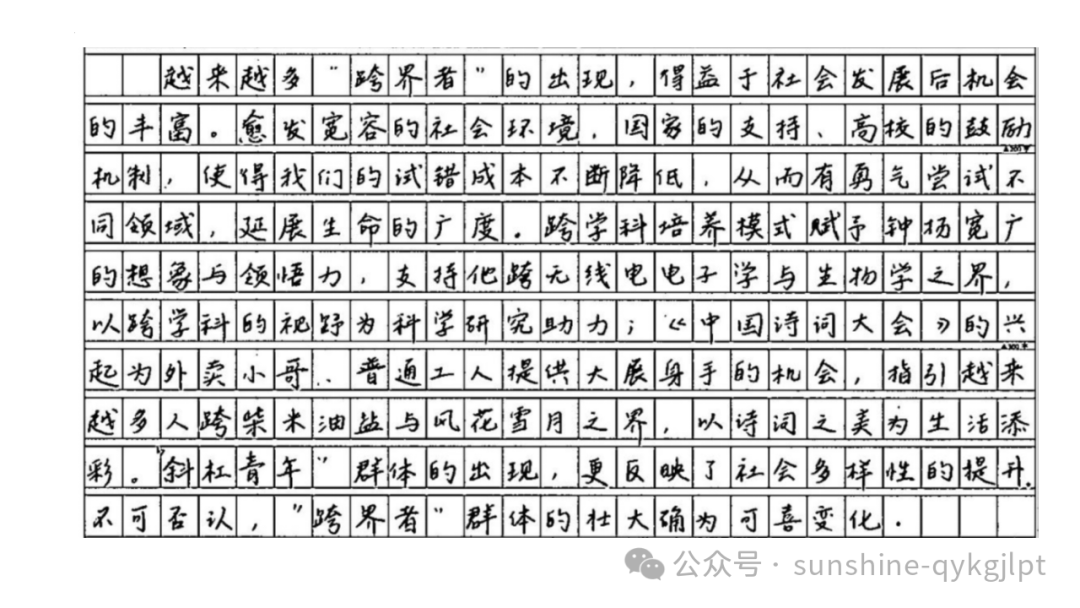 越来越多“跨界者”的出现，得益于社会发展后机会
的丰富。愈发宽容的社会环境、国家的支持、高校的鼓励
▲200字
机制，使得我们的试错成本不断降低，从而有勇气尝试不
同领域，延展生命的广度。跨学科培养模式赋予钟扬宽广
的想象与领悟力，支持他跨无线电电子学与生物学之界，
以跨学科的视野为科学研究助力；《中国诗词大会》的兴
▲300字
起为外卖小哥、普通工人提供大展身手的机会，指引越来
越多人跨柴米油盐与风花雪月之界，以诗词之美为生活添
彩。“斜杠青年”群体的出现，更反映了社会多样性的提升．
不可否认，“跨界者”群体的壮大确为可喜变化．
公众号·sunshine-qykgjlpt